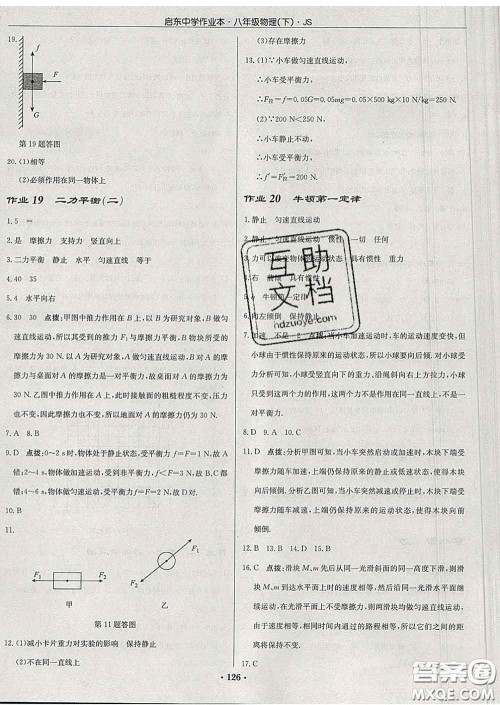 启东中学作业本·八年级物理(下)·JS
19.
f
F
G
第19题答图
20.(1)相等
(2)必须作用在同一物体上
作业19 二力平衡(二)
1.5 =
2.是 摩擦力 支持力 竖直向上
3.二力平衡 静止 水平 匀速直线 等于
4.40 35
5.4 水平向右
6.30 30 点拨:甲图中推力作用在B上,以B为研究对象,B做匀
速直线运动,所以其受到的推力F₁与摩擦力相平衡,B物块所受
的摩擦力为30 N.以A为研究对象,A做匀速直线运动,B对A
的摩擦力与桌面对A的摩擦力二力平衡,故桌面对A的摩擦力
为30 N.乙图中推力作用在A上,此时接触面的粗糙程度不变,压
力也不变,摩擦力也不变,所以地面对A的摩擦力仍为30 N.
7.A 8.C
9.D 点拨:0~2 s时,物体处于静止状态,受平衡力,f=F=1 N,故A
错;2~4 s,物体做加速运动,受到非平衡力,f<F=3 N,故B、C
错;4~6 s,物体做匀速运动,受平衡力f=F=2 N,故D对.
10.B
11.
F₁
F₂
F₁
F₂
甲
乙
第11题答图
12.(1)减小卡片重力对实验的影响 保持静止
(2)不在同一直线上
(3)存在摩擦力
13.(1)∵小车做匀速直线运动,
∴小车受平衡力.
∴F阻=f=0.05G=0.05mg=0.05×500 kg×10 N/kg=250 N.
(2)∵200 N<250 N,
∴小车静止不动.
∴小车受平衡力.
∴F阻
作业20 牛顿第一定律
1.静止 匀速直线运动
2.静止 匀速直线运动 惯性 一切 任何
3.力可以改变物体的运动状态 具有惯性 重力
4.右 惯性
5. 牛顿第一定律
6.向左倾倒 保持静止
7.速度 不是 点拨:当小车加速运动时,小车的运动速度变快,但
小球由于惯性保持原来的运动状态,所以小球要向后倾.对小球
受力分析可知,小球受到竖直向下的重力、沿绳斜向右上的拉力,
所以这两个力的作用不在一条直线上,不是一对平衡力.
8.D 9.A 10.C
11.D 点拨:分析甲图可知,当小车突然启动或加速时,木块下端受
摩擦力随车向右,上端仍保持原来的静止或低速状态,使得木块
向左倾倒;分析乙图可知,当小车突然减速或停止运动时,木块下
端受摩擦力随车静止,上端仍保持原来的运动状态,使得木块向
右倾倒.
12.B 13.D 14.B 15.D
16.C 点拨:滑块M、N从同一光滑斜面的同一高度下滑,则到
达水平面上时的速度相等,然后在同一光滑的水平面上运动,即
不受摩擦力,由于惯性,它们都会保持原来的速度做匀速直线运
动.因为水平面光滑,即不受摩擦力,所以它们运动的速度大小
始终相等.并且相同时间内通过的路程也相等,所以滑块M和N
不会相碰.
17.C
·126·
互助
文档
hdzuoye.com
答案圈
MXQE.COM